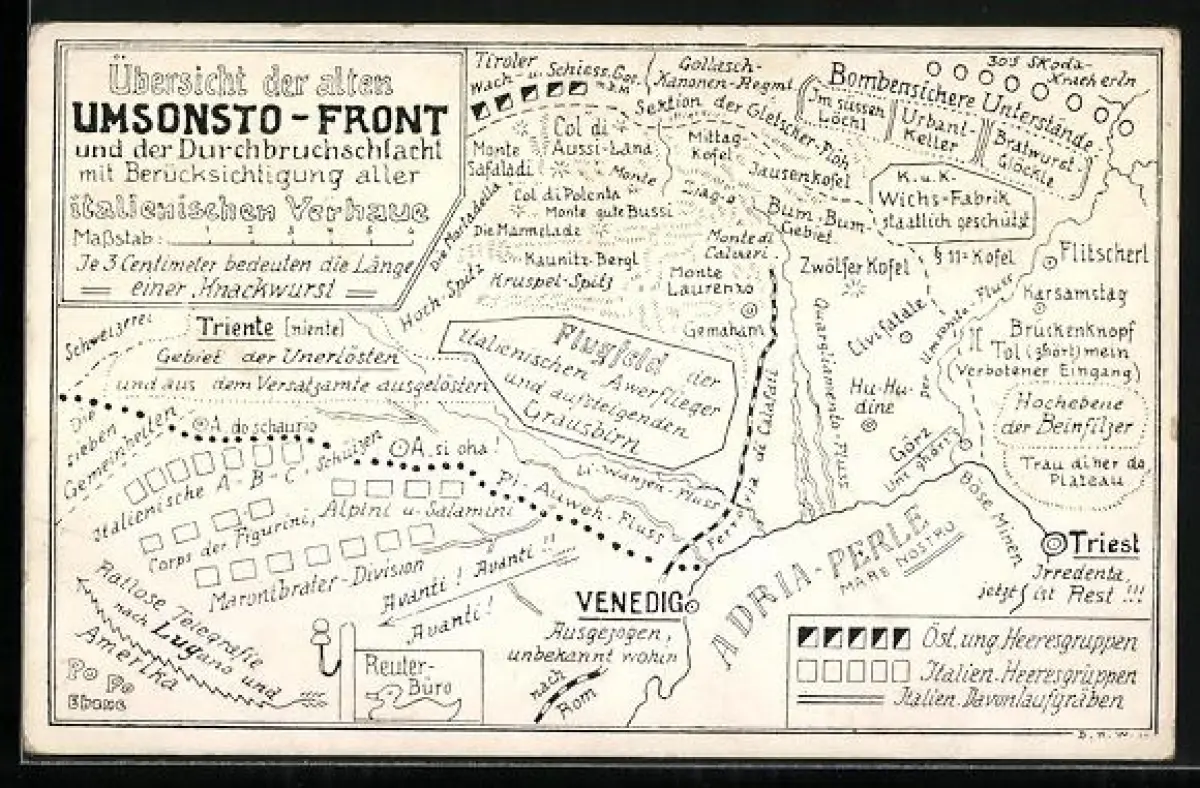 Übersicht der alten
UMSONSTO-FRONT
und der Durchbruchschlacht
mit Berücksichtigung aller
italienischen Verhaue
Maßstab: 1 2 3 4 5 6
Je 3 Centimeter bedeuten die Länge
einer Knackwurst
Tiroler
Wach- u. Schiess. Ges.
m.b.H.
Gollasch-
Kanonen-Regmt.
Sektion der Gletscher-Flöh
Bombensichere Unterstände
Im süssen
Löchl
Urbani-
Keller
Bratwurst-
Glöckle
305 Skoda-
Knacherln
Monte
Safaladi
Col di
Aussi-Lana
Monte
Mittag-
Kofel
Jausenkofel
K.u.K-
Wichs-Fabrik
staatlich geschützt
Die Mortadella
Col di Polenta
Monte gute Bussi
Die Marmelade
Kaunitz-Bergl
Kruspel-Spitz
Hoch-Spitz
Bum-Bum-
Gebiet
Monte di
Calcieri
Monte
Laurenzo
Gemaham
Zwölfer Kofel
§ 11=Kofel
Flitscherl
Karsamstag
Brückenknopf
Tol (ghört) mein
(Verbotener Eingang)
Hochebene
der Beinfilzer
Trau di her da,
Plateau
Schweizerei
Triente [niente]
Gebiet der Unerlösten
und aus dem Versatzamte ausgelösten
Flugfeld der
Italienischen Awerflieger
und aufsteigenden
Grausbirn
Quargliamento-Fluss
Civifalale
Der Umsonsto-Fluss
Hu-Hu-
dine
Görz
Uns ghört's
Die
sieben
Gemeinheiten
A. do schaurio
A. si oha!
Italienische A-B-C-Schützen
Corps der Figurini, Alpini u. Salamini
Maronibrater-Division
Li-Wanzen-Fluss
Pi-Auweh-Fluss
Ferrovia di Calafati
Avanti! Avanti!!
Avanti!
ADRIA-PERLE
MARE NOSTRO
Böse Minen
Triest
Irredenta,
jetzt ist Rest!!!
VENEDIG
Ausgezogen,
unbekannt wohin
nach
Rom
Ratlose Telegrafie
nach Lugano und
Amerika
Po Po
Ebene
Reuter-
Büro
Öst. ung. Heeresgruppen
Italien. Heeresgruppen
Italien. Davonlaufgräben